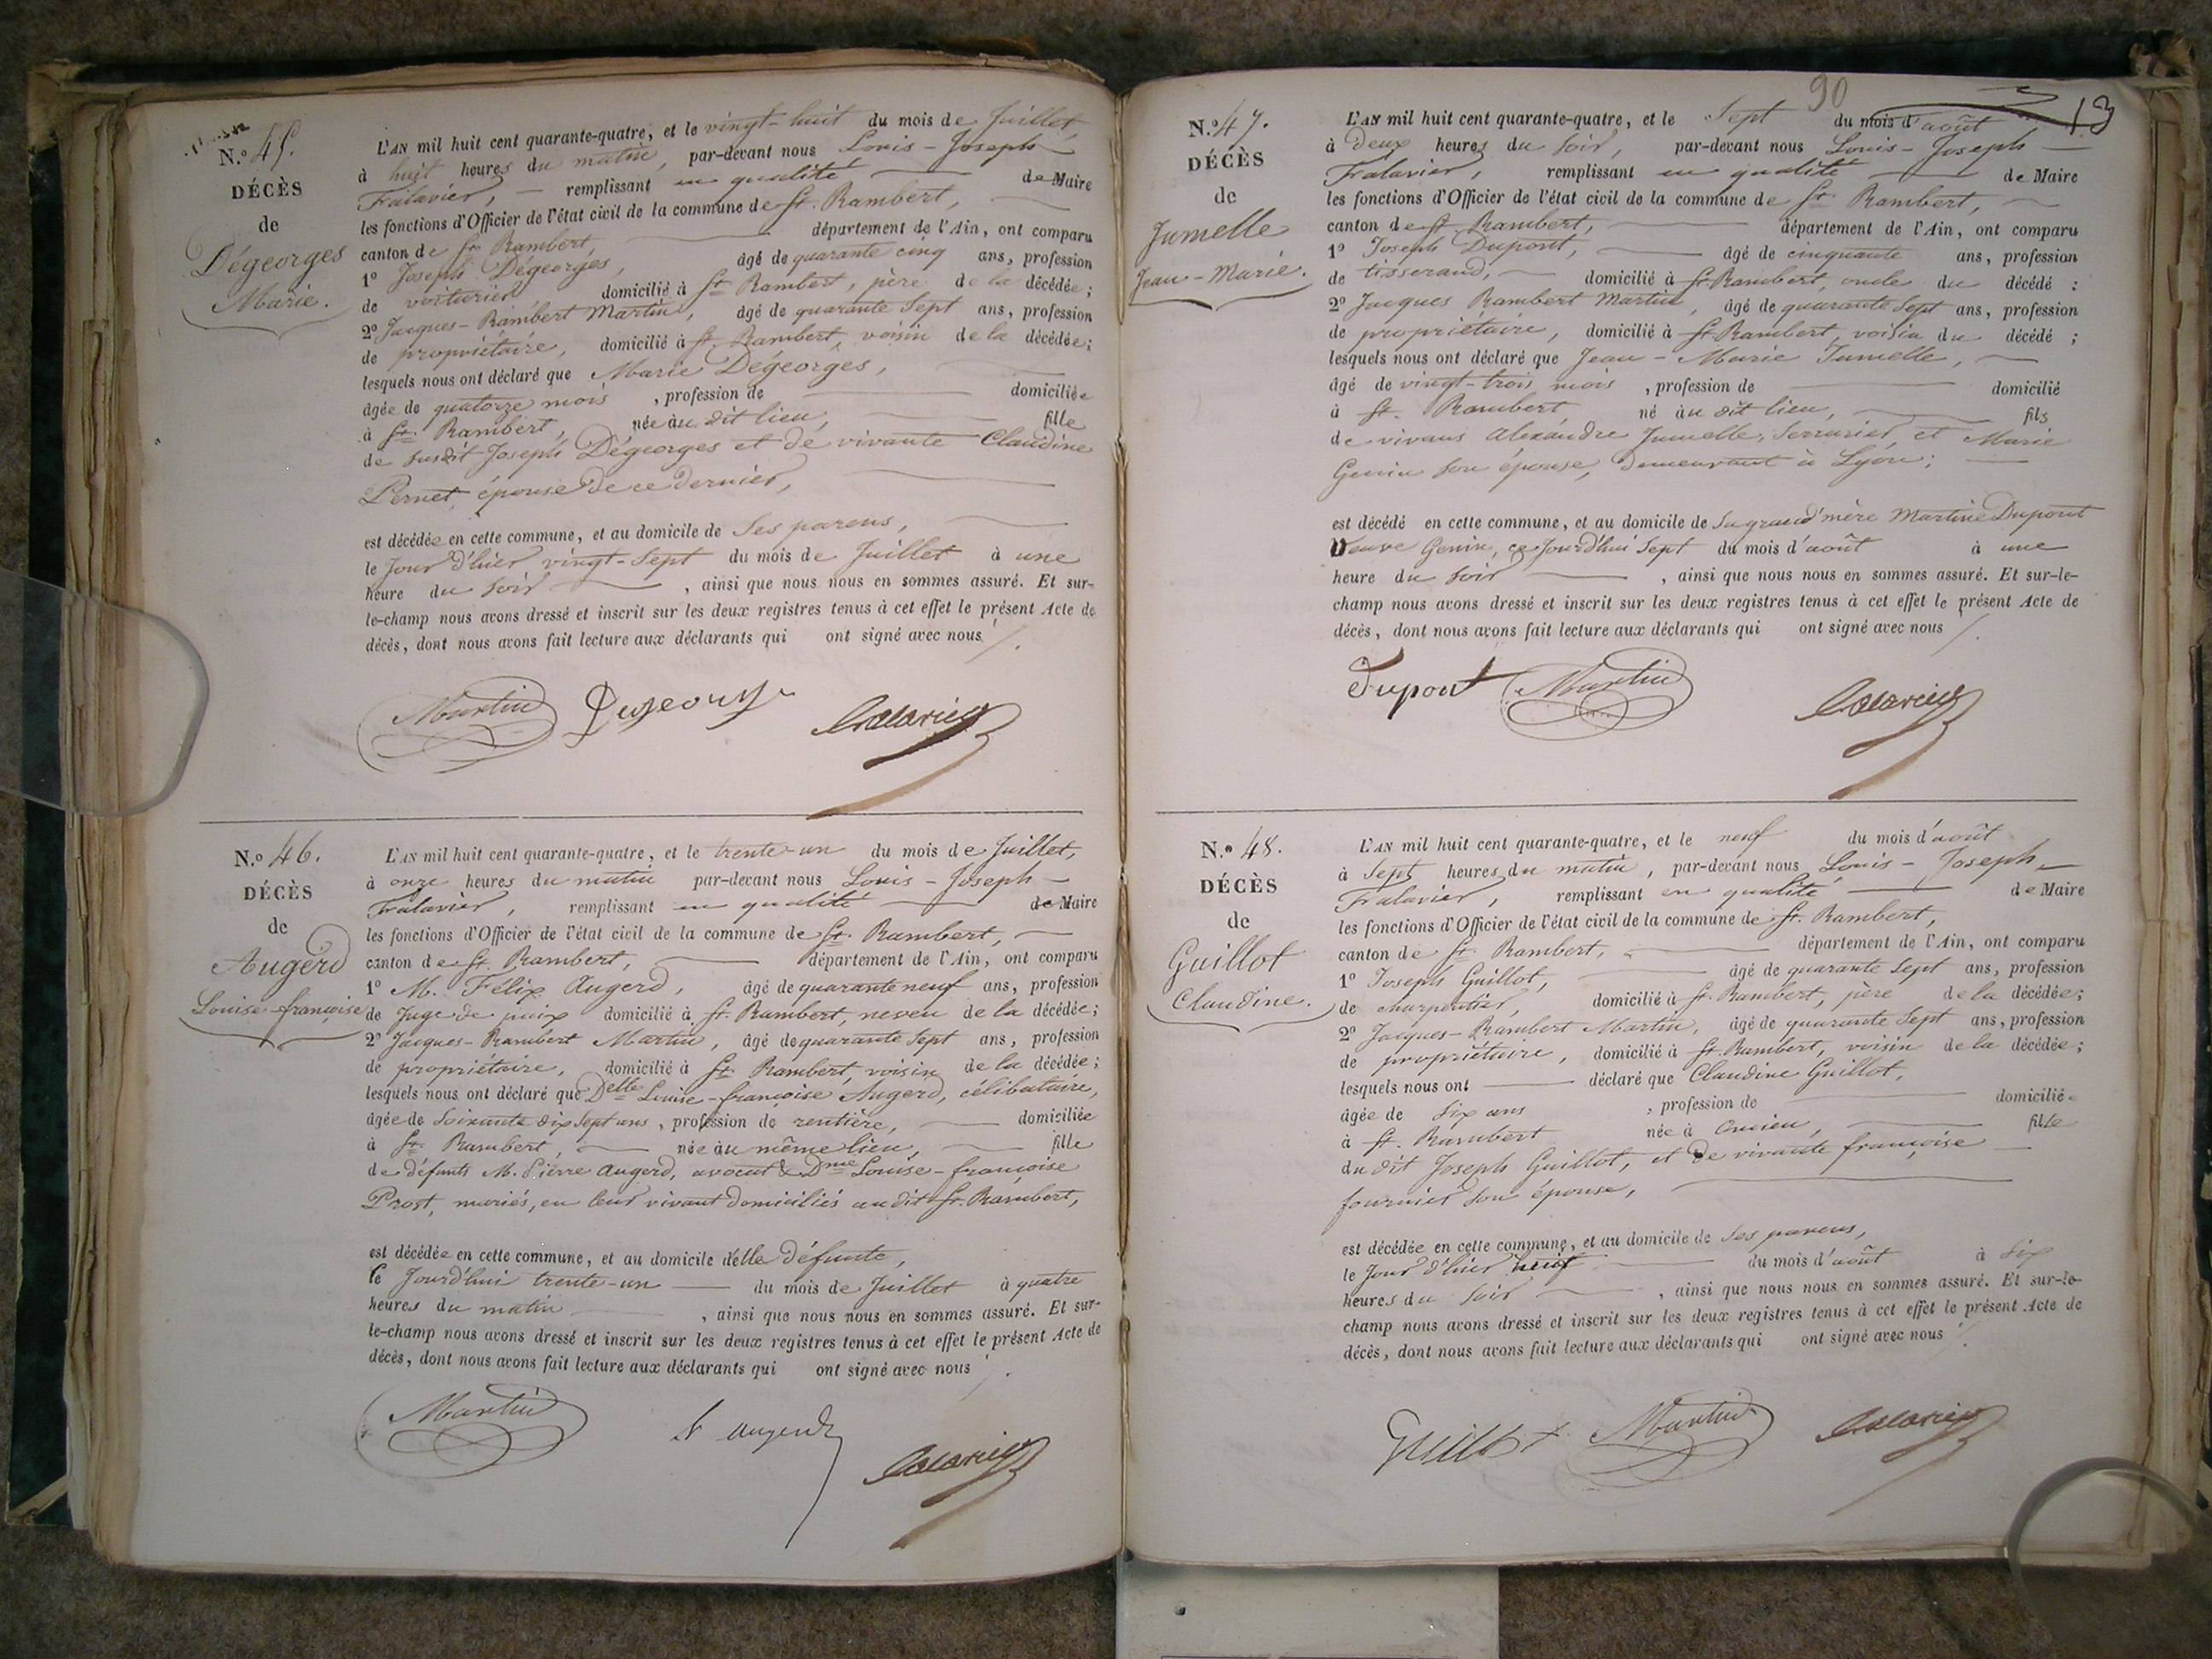 N.º 45.
DÉCÈS
de
Dégeorges
Marie.
L'AN mil huit cent quarante-quatre, et le vingt-huit du mois de Juillet,
à huit heures du matin, par-devant nous Louis-Joseph
Falavier, remplissant en qualité de Maire
les fonctions d'Officier de l'état civil de la commune de St. Rambert,
canton de St. Rambert, département de l'Ain, ont comparu
1º Joseph Dégeorges, âgé de quarante cinq ans, profession
de voiturier domicilié à St. Rambert, père de la décédée;
2º Jacques-Rambert Martin, âgé de quarante sept ans, profession
de propriétaire, domicilié à St. Rambert, voisin de la décédée;
lesquels nous ont déclaré que Marie Dégeorges,
âgée de quatorze mois, profession de domiciliée
à St. Rambert, née au dit lieu, fille
de susdit Joseph Dégeorges et de vivante Claudine
Pernet, épouse de ce dernier,
est décédée en cette commune, et au domicile de ses parens,
le jour d'hier vingt-sept du mois de Juillet à une
heure du soir, ainsi que nous nous en sommes assuré. Et sur-
le-champ nous avons dressé et inscrit sur les deux registres tenus à cet effet le présent Acte de
décès, dont nous avons fait lecture aux déclarants qui ont signé avec nous
Martin Degeorges Falavier
N.º 46.
DÉCÈS
de
Augerd
Louise-françoise
L'AN mil huit cent quarante-quatre, et le trente-un du mois de Juillet,
à onze heures du matin par-devant nous Louis-Joseph
Falavier, remplissant en qualité de Maire
les fonctions d'Officier de l'état civil de la commune de St. Rambert,
canton de St. Rambert, département de l'Ain, ont comparu
1º M. Félix Augerd, âgé de quarante neuf ans, profession
de Juge de paix domicilié à St. Rambert, neveu de la décédée;
2º Jacques-Rambert Martin, âgé de quarante sept ans, profession
de propriétaire, domicilié à St. Rambert, voisin de la décédée;
lesquels nous ont déclaré que Delle Louise-françoise Augerd, célibataire,
âgée de soixante dix sept ans, profession de rentière, domiciliée
à St. Rambert, née au même lieu, fille
de défunts M. Pierre Augerd, avocat & Dme Louise-françoise
Prost, mariés, en leur vivant domiciliés au dit St. Rambert,
est décédée en cette commune, et au domicile d'elle défunte,
le Jourd'hui trente-un du mois de Juillet à quatre
heures du matin, ainsi que nous nous en sommes assuré. Et sur-
le-champ nous avons dressé et inscrit sur les deux registres tenus à cet effet le présent Acte de
décès, dont nous avons fait lecture aux déclarants qui ont signé avec nous
Martin augerd Falavier
90
13
N.º 47.
DÉCÈS
de
Jumelle
Jean-Marie.
L'AN mil huit cent quarante-quatre, et le sept du mois d'août
à deux heures du soir, par-devant nous Louis-Joseph
Falavier, remplissant en qualité de Maire
les fonctions d'Officier de l'état civil de la commune de St. Rambert,
canton de St. Rambert, département de l'Ain, ont comparu
1º Joseph Dupont, âgé de cinquante ans, profession
de tisserand, domicilié à St. Rambert, oncle du décédé;
2º Jacques Rambert Martin, âgé de quarante sept ans, profession
de propriétaire, domicilié à St. Rambert, voisin du décédé;
lesquels nous ont déclaré que Jean-Marie Jumelle,
âgé de vingt-trois mois, profession de domicilié
à St. Rambert né au dit lieu, fils
de vivans Alexandre Jumelle, serrurier, et Marie
Genin son épouse, demeurant à Lyon;
est décédé en cette commune, et au domicile de sa grand'mère Martine Dupont
veuve Genin, ce jourd'hui sept du mois d'août à une
heure du soir, ainsi que nous nous en sommes assuré. Et sur-le-
champ nous avons dressé et inscrit sur les deux registres tenus à cet effet le présent Acte de
décès, dont nous avons fait lecture aux déclarants qui ont signé avec nous
Dupont Martin Falavier
N.º 48.
DÉCÈS
de
Guillot
Claudine.
L'AN mil huit cent quarante-quatre, et le neuf du mois d'août
à sept heures du matin, par-devant nous Louis-Joseph
Falavier, remplissant en qualité de Maire
les fonctions d'Officier de l'état civil de la commune de St. Rambert,
canton de St. Rambert, département de l'Ain, ont comparu
1º Joseph Guillot, âgé de quarante sept ans, profession
de charpentier, domicilié à St. Rambert, père de la décédée;
2º Jacques-Rambert Martin, âgé de quarante sept ans, profession
de propriétaire, domicilié à St. Rambert, voisin de la décédée;
lesquels nous ont déclaré que Claudine Guillot,
âgée de six ans, profession de domiciliée
à St. Rambert née à fille
du dit Joseph Guillot, et de vivante françoise
fournier son épouse,
est décédée en cette commune, et au domicile de ses parens,
le jour d'hier du mois d'août à six
heures du soir, ainsi que nous nous en sommes assuré. Et sur-le-
champ nous avons dressé et inscrit sur les deux registres tenus à cet effet le présent Acte de
décès, dont nous avons fait lecture aux déclarants qui ont signé avec nous
Guillot Martin Falavier